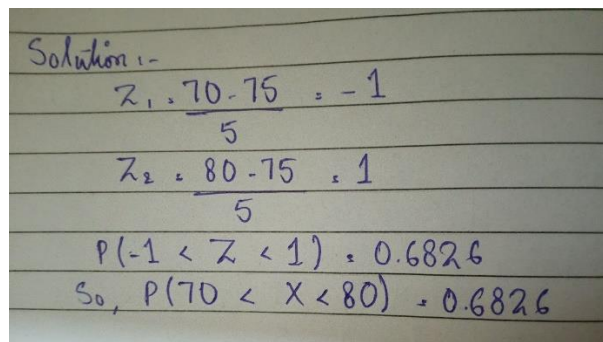 Solution :-
Z₁ = 70-75 / 5 = -1
Z₂ = 80-75 / 5 = 1
P(-1 < Z < 1) = 0.6826
So, P(70 < X < 80) = 0.6826